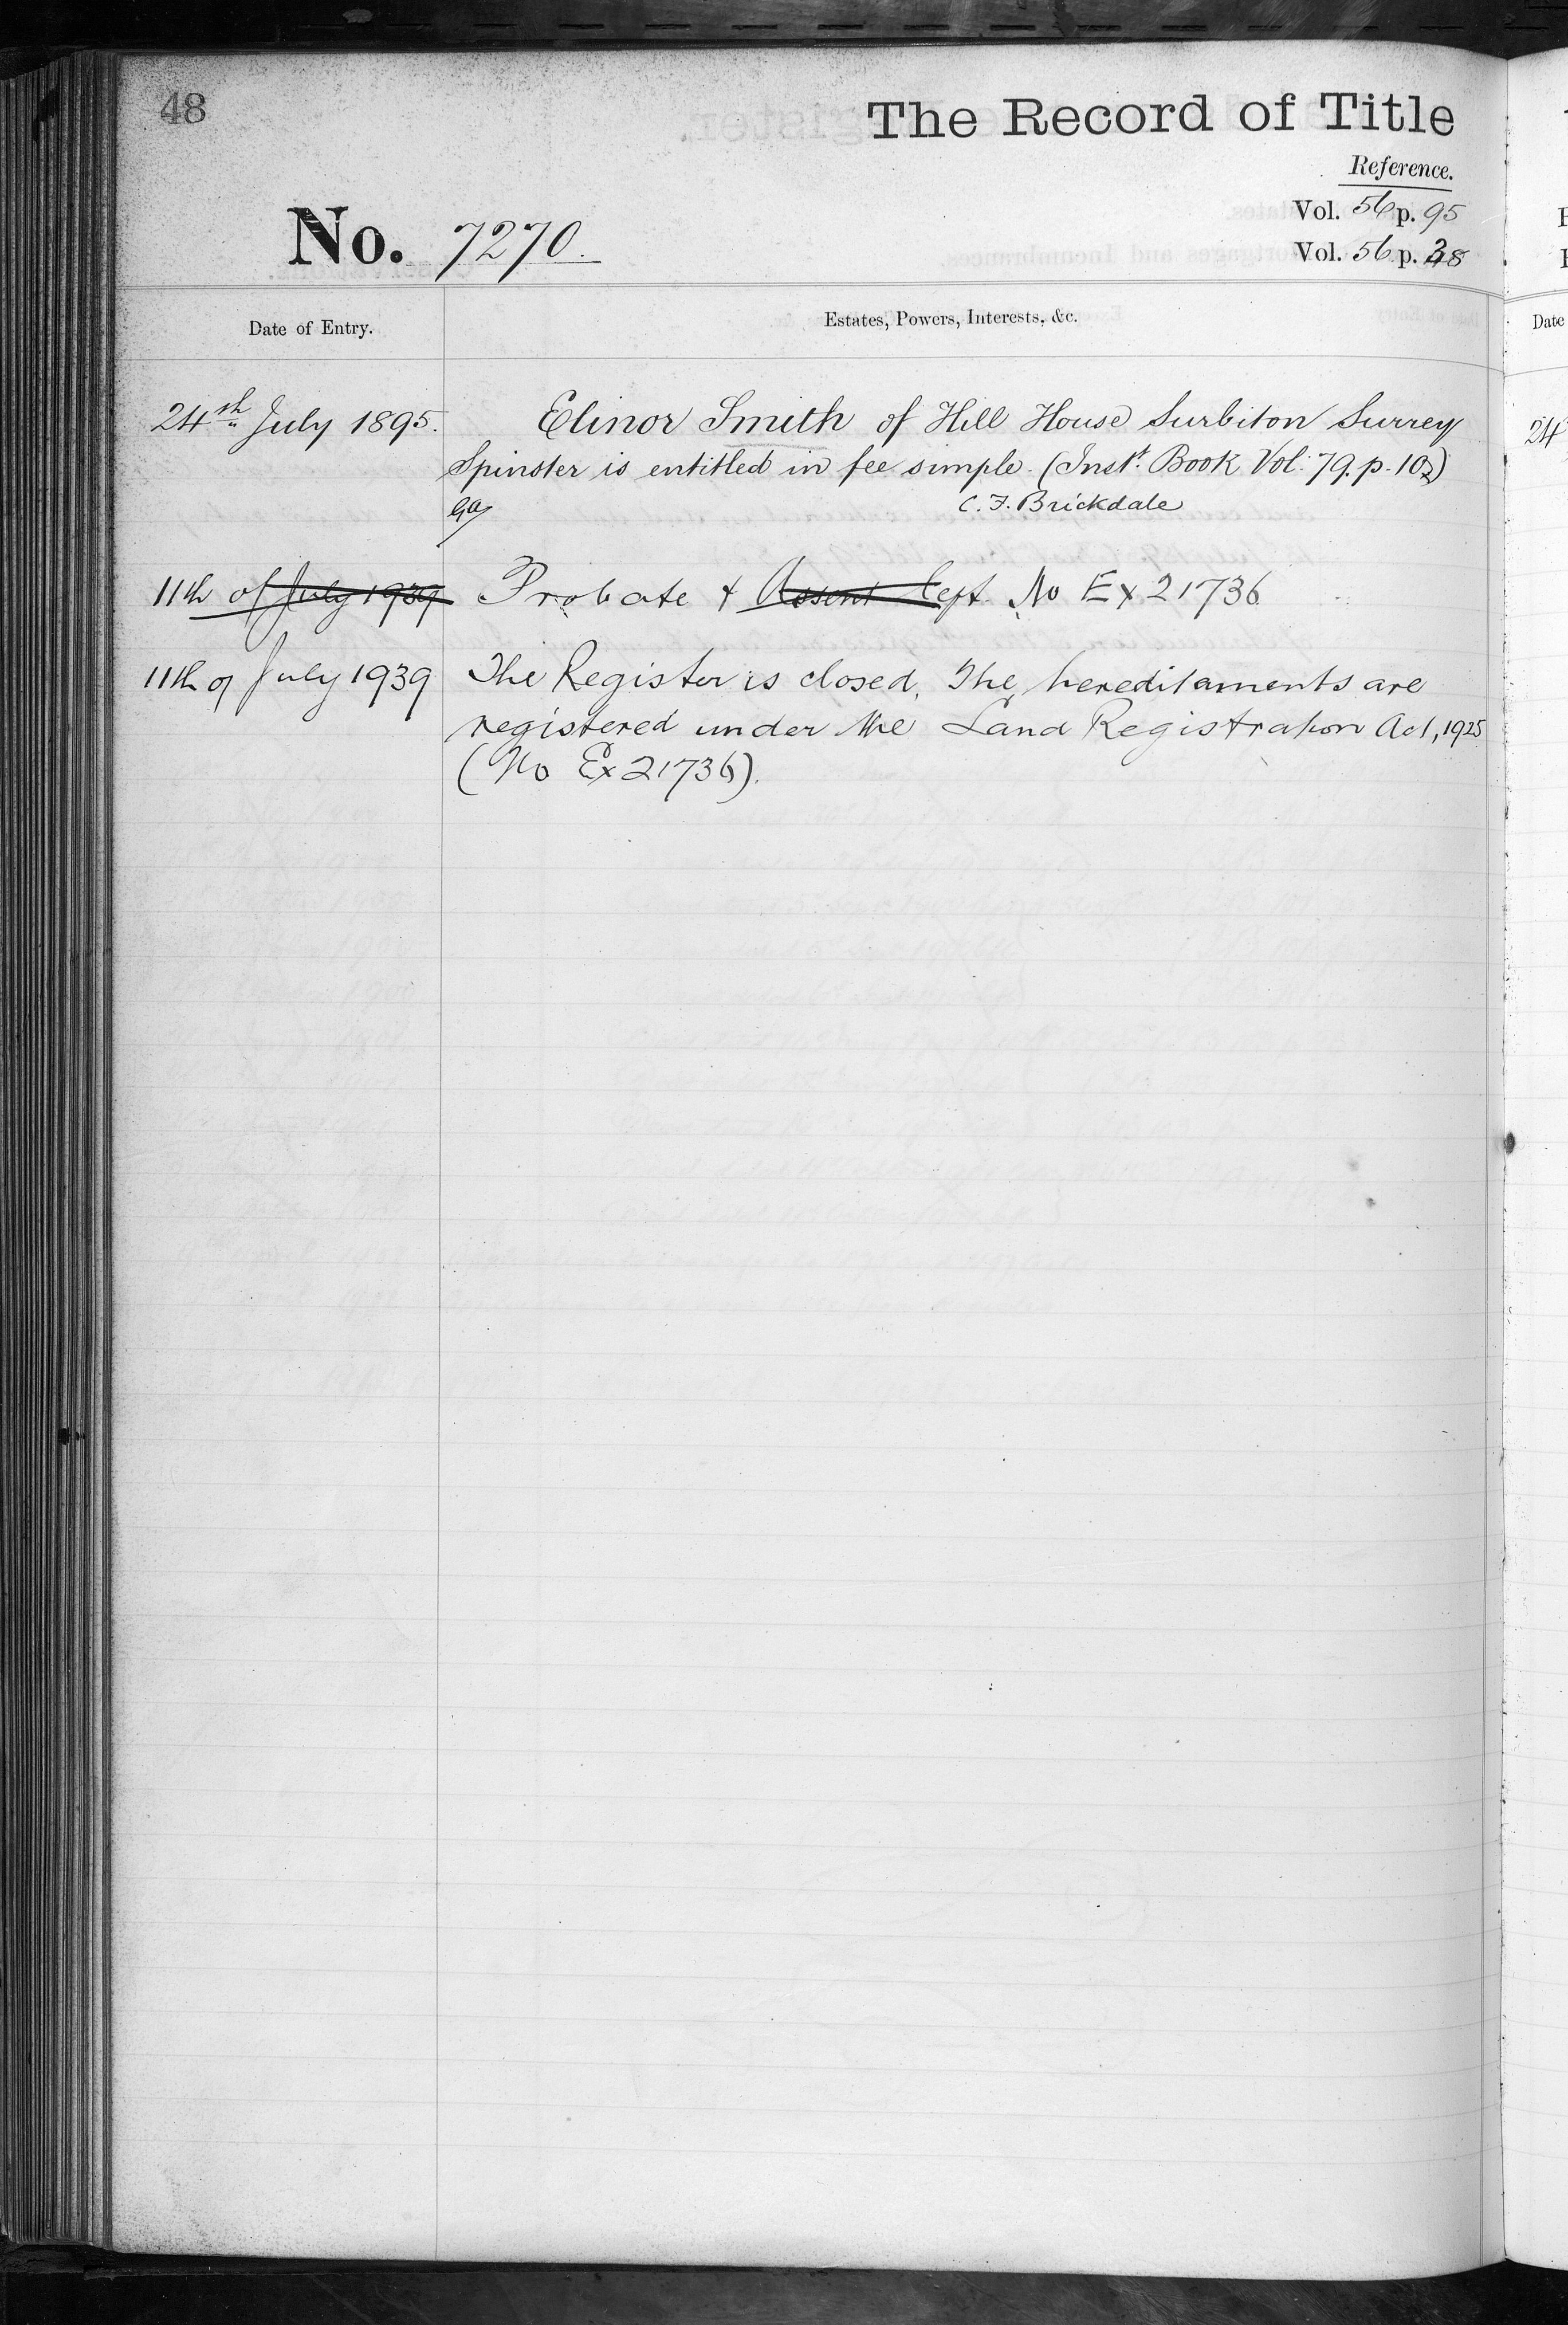 48
The Record of Title
Reference.
Vol. 56 p. 95
No. 7270.
Vol. 56 p. 38
Date of Entry.
Estates, Powers, Interests, &c.
24th July 1895. Elinor Smith of Hill House Surbiton Surrey
Spinster is entitled in fee simple. (Inst. Book Vol: 79. p. 102)
C. F. Brickdale
11th of July 1939 Probate & Assent Dept. No Ex 21736
11th of July 1939 The Register is closed, The hereditaments are
registered under the Land Registration Act, 1925
(No Ex 21736).
Date
24